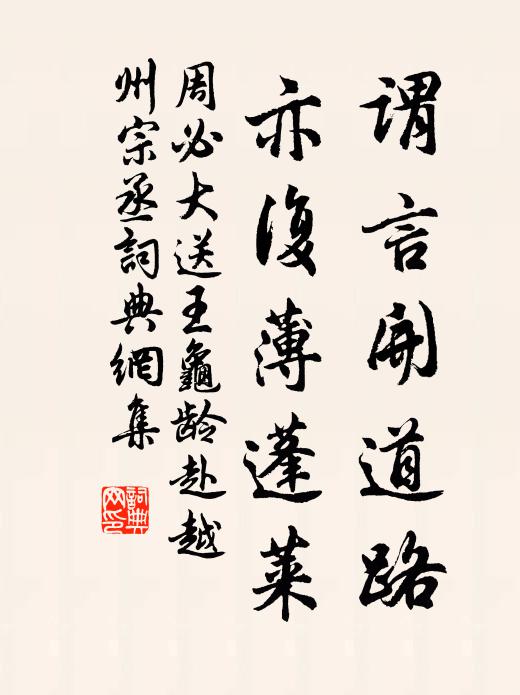 謂言開道路
亦復薄蓬萊
周必大送王龜齡赴越
州宗丞詞典網集
詞典
网印